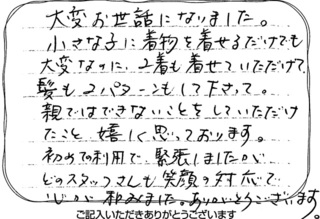 大変お世話になりました。
小さな子に着物を着せるだけでも
大変なのに、2着も着せていただけて
髪も2パターンもして下さって。
親ではできないことをしていただけ
たこと 嬉しく思っております。
初めての利用で、緊張しましたが
どのスタッフさんも笑顔の対応で
心が和みました。ありがとうございます。
ご記入いただきありがとうございます